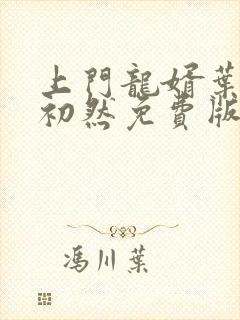 上門龍婿葉
初然免費版
馮川葉